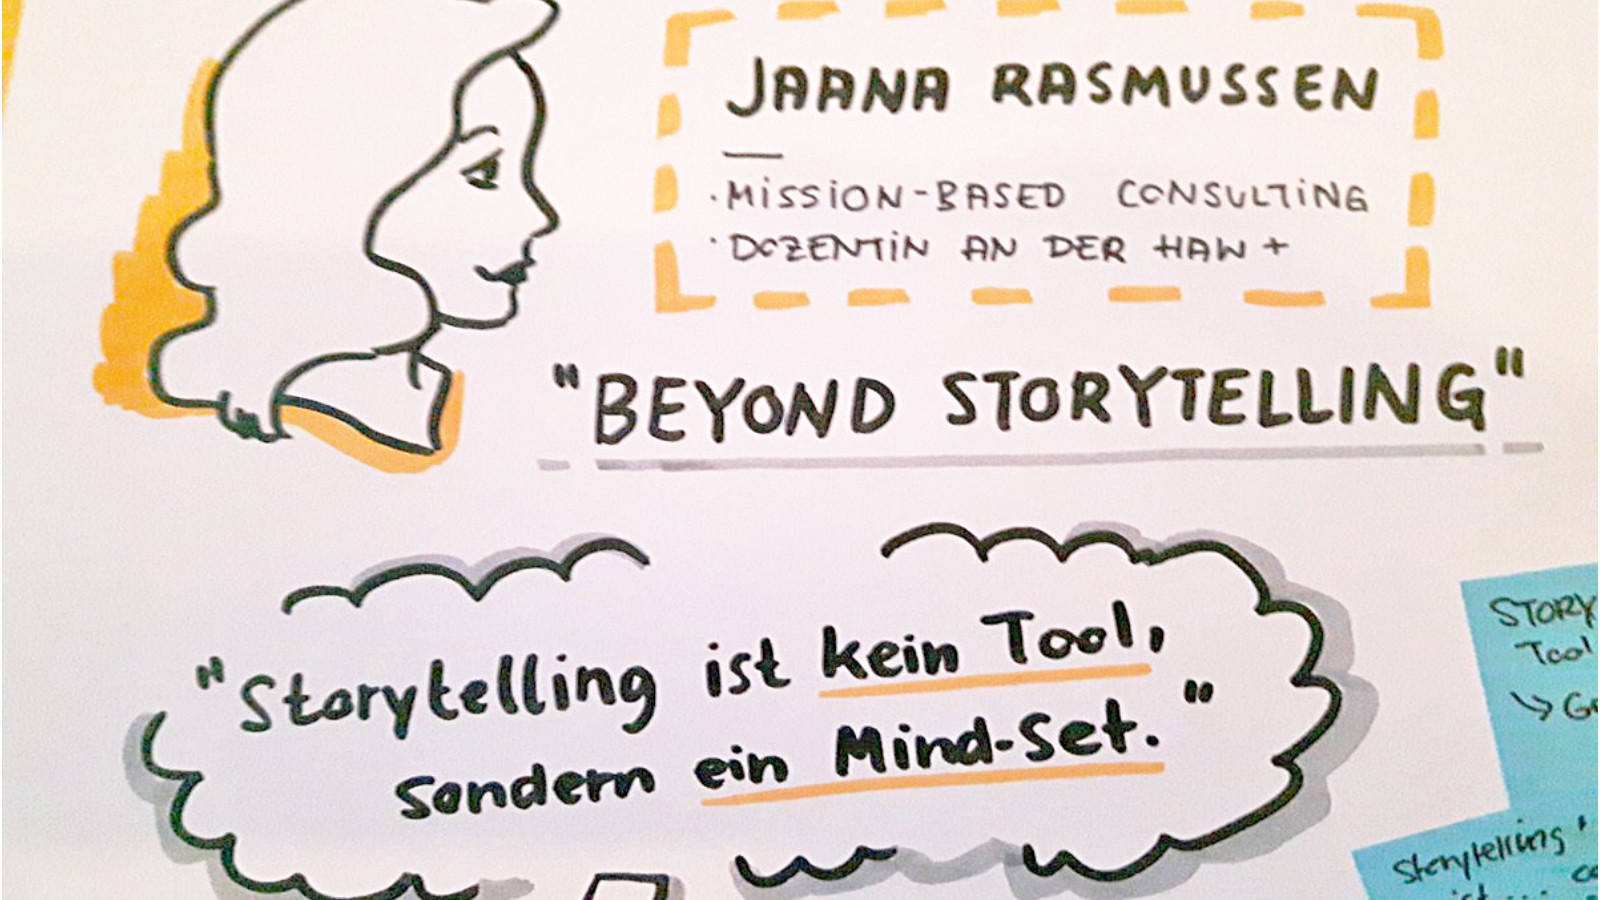 JAANA RASMUSSEN
—
· MISSION-BASED CONSULTING
· DOZENTIN AN DER HAW +
"BEYOND STORYTELLING"
"Storytelling ist kein Tool,
sondern ein Mind-Set."
STORY
Tool
↳ G
Storytelling"
ist ...